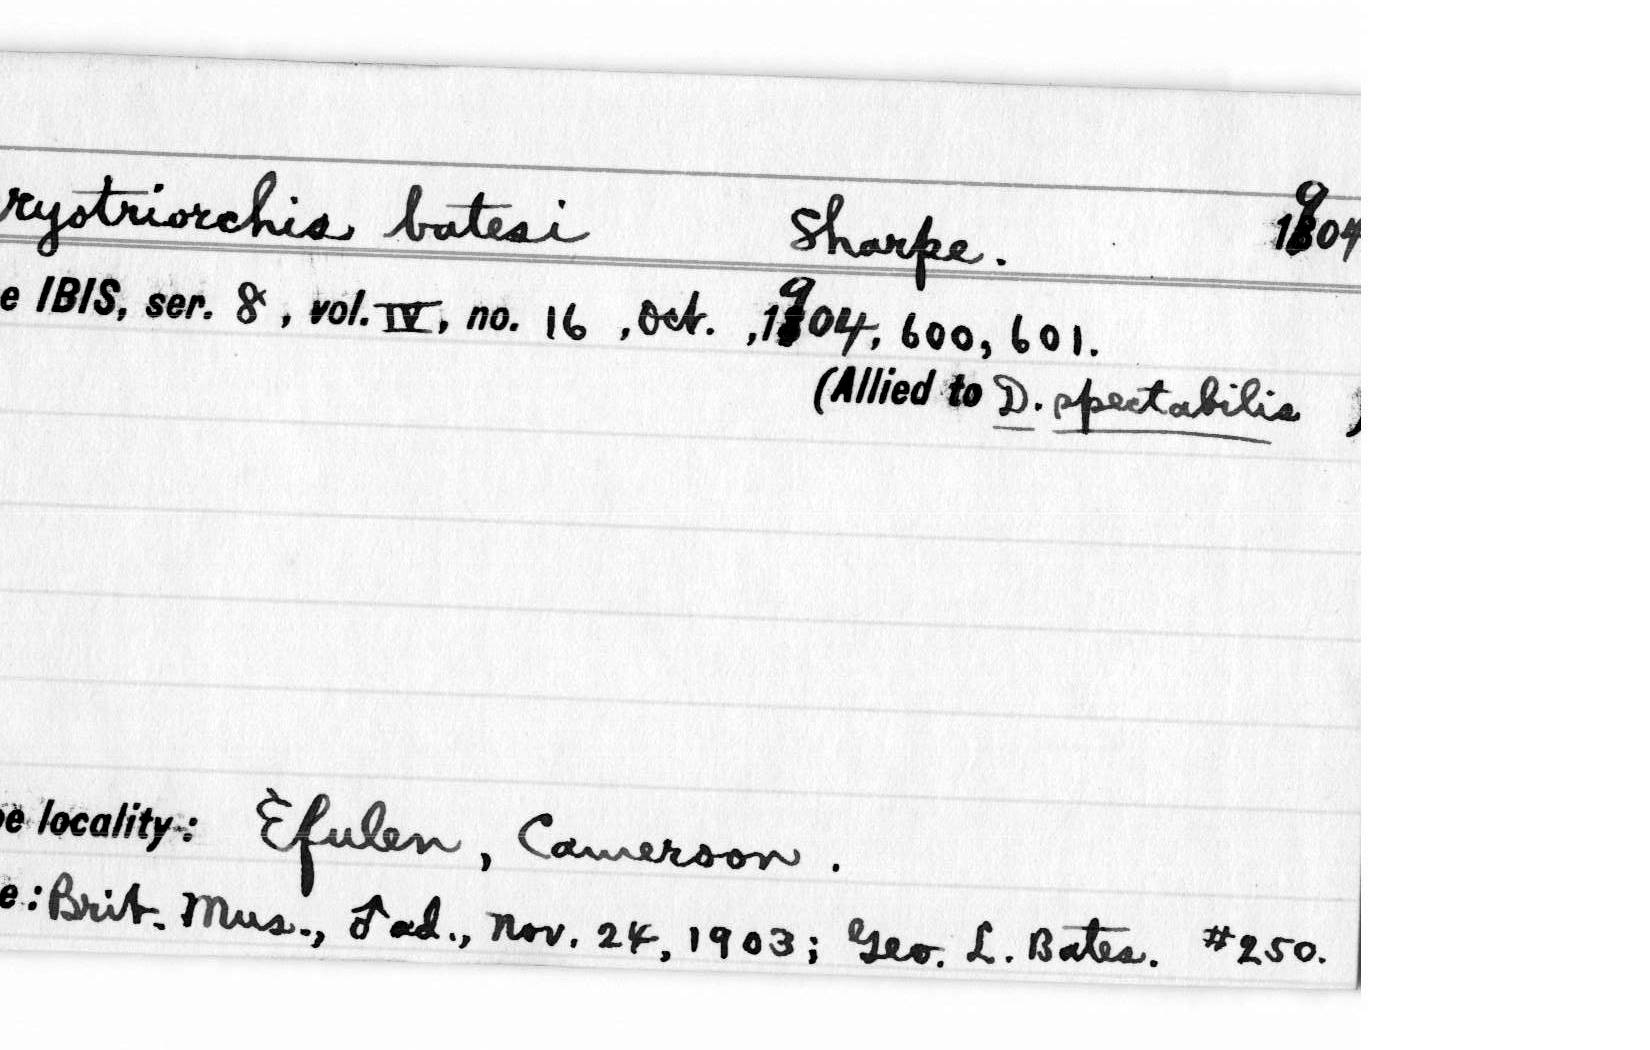 rystriorchis batesi Sharpe. 1904
e IBIS, ser. 8, vol. IV, no. 16, Oct., 1904, 600, 601.
(Allied to D. spectabilis )
pe locality: Efulen, Cameroon.
e: Brit. Mus., ♂ ad., Nov. 24, 1903; Geo. L. Bates. #250.